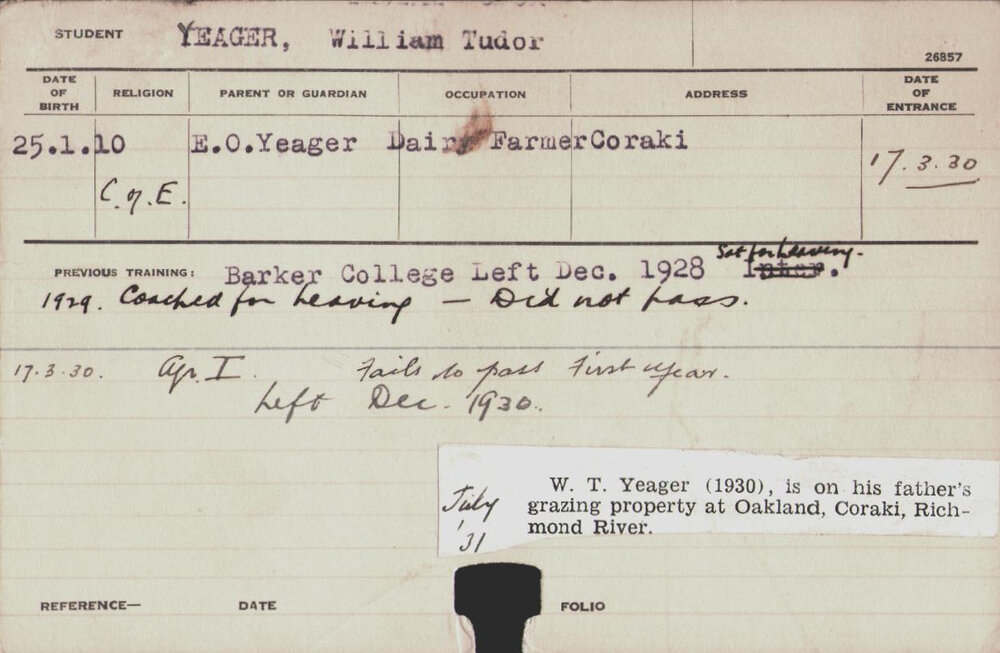 STUDENT YEAGER, William Tudor
26857
DATE OF BIRTH RELIGION PARENT OR GUARDIAN OCCUPATION ADDRESS DATE OF ENTRANCE
25.1.10 E.O.Yeager Dairy Farmer Coraki 17.3.30
C. of E.
Sat for Leaving.
PREVIOUS TRAINING: Barker College Left Dec. 1928 Inter.
1929. Coached for Leaving — Did not pass.
17.3.30. Agr. I. Fails to pass First year.
Left Dec. 1930.
July '31
W. T. Yeager (1930), is on his father's
grazing property at Oakland, Coraki, Rich-
mond River.
REFERENCE— DATE FOLIO